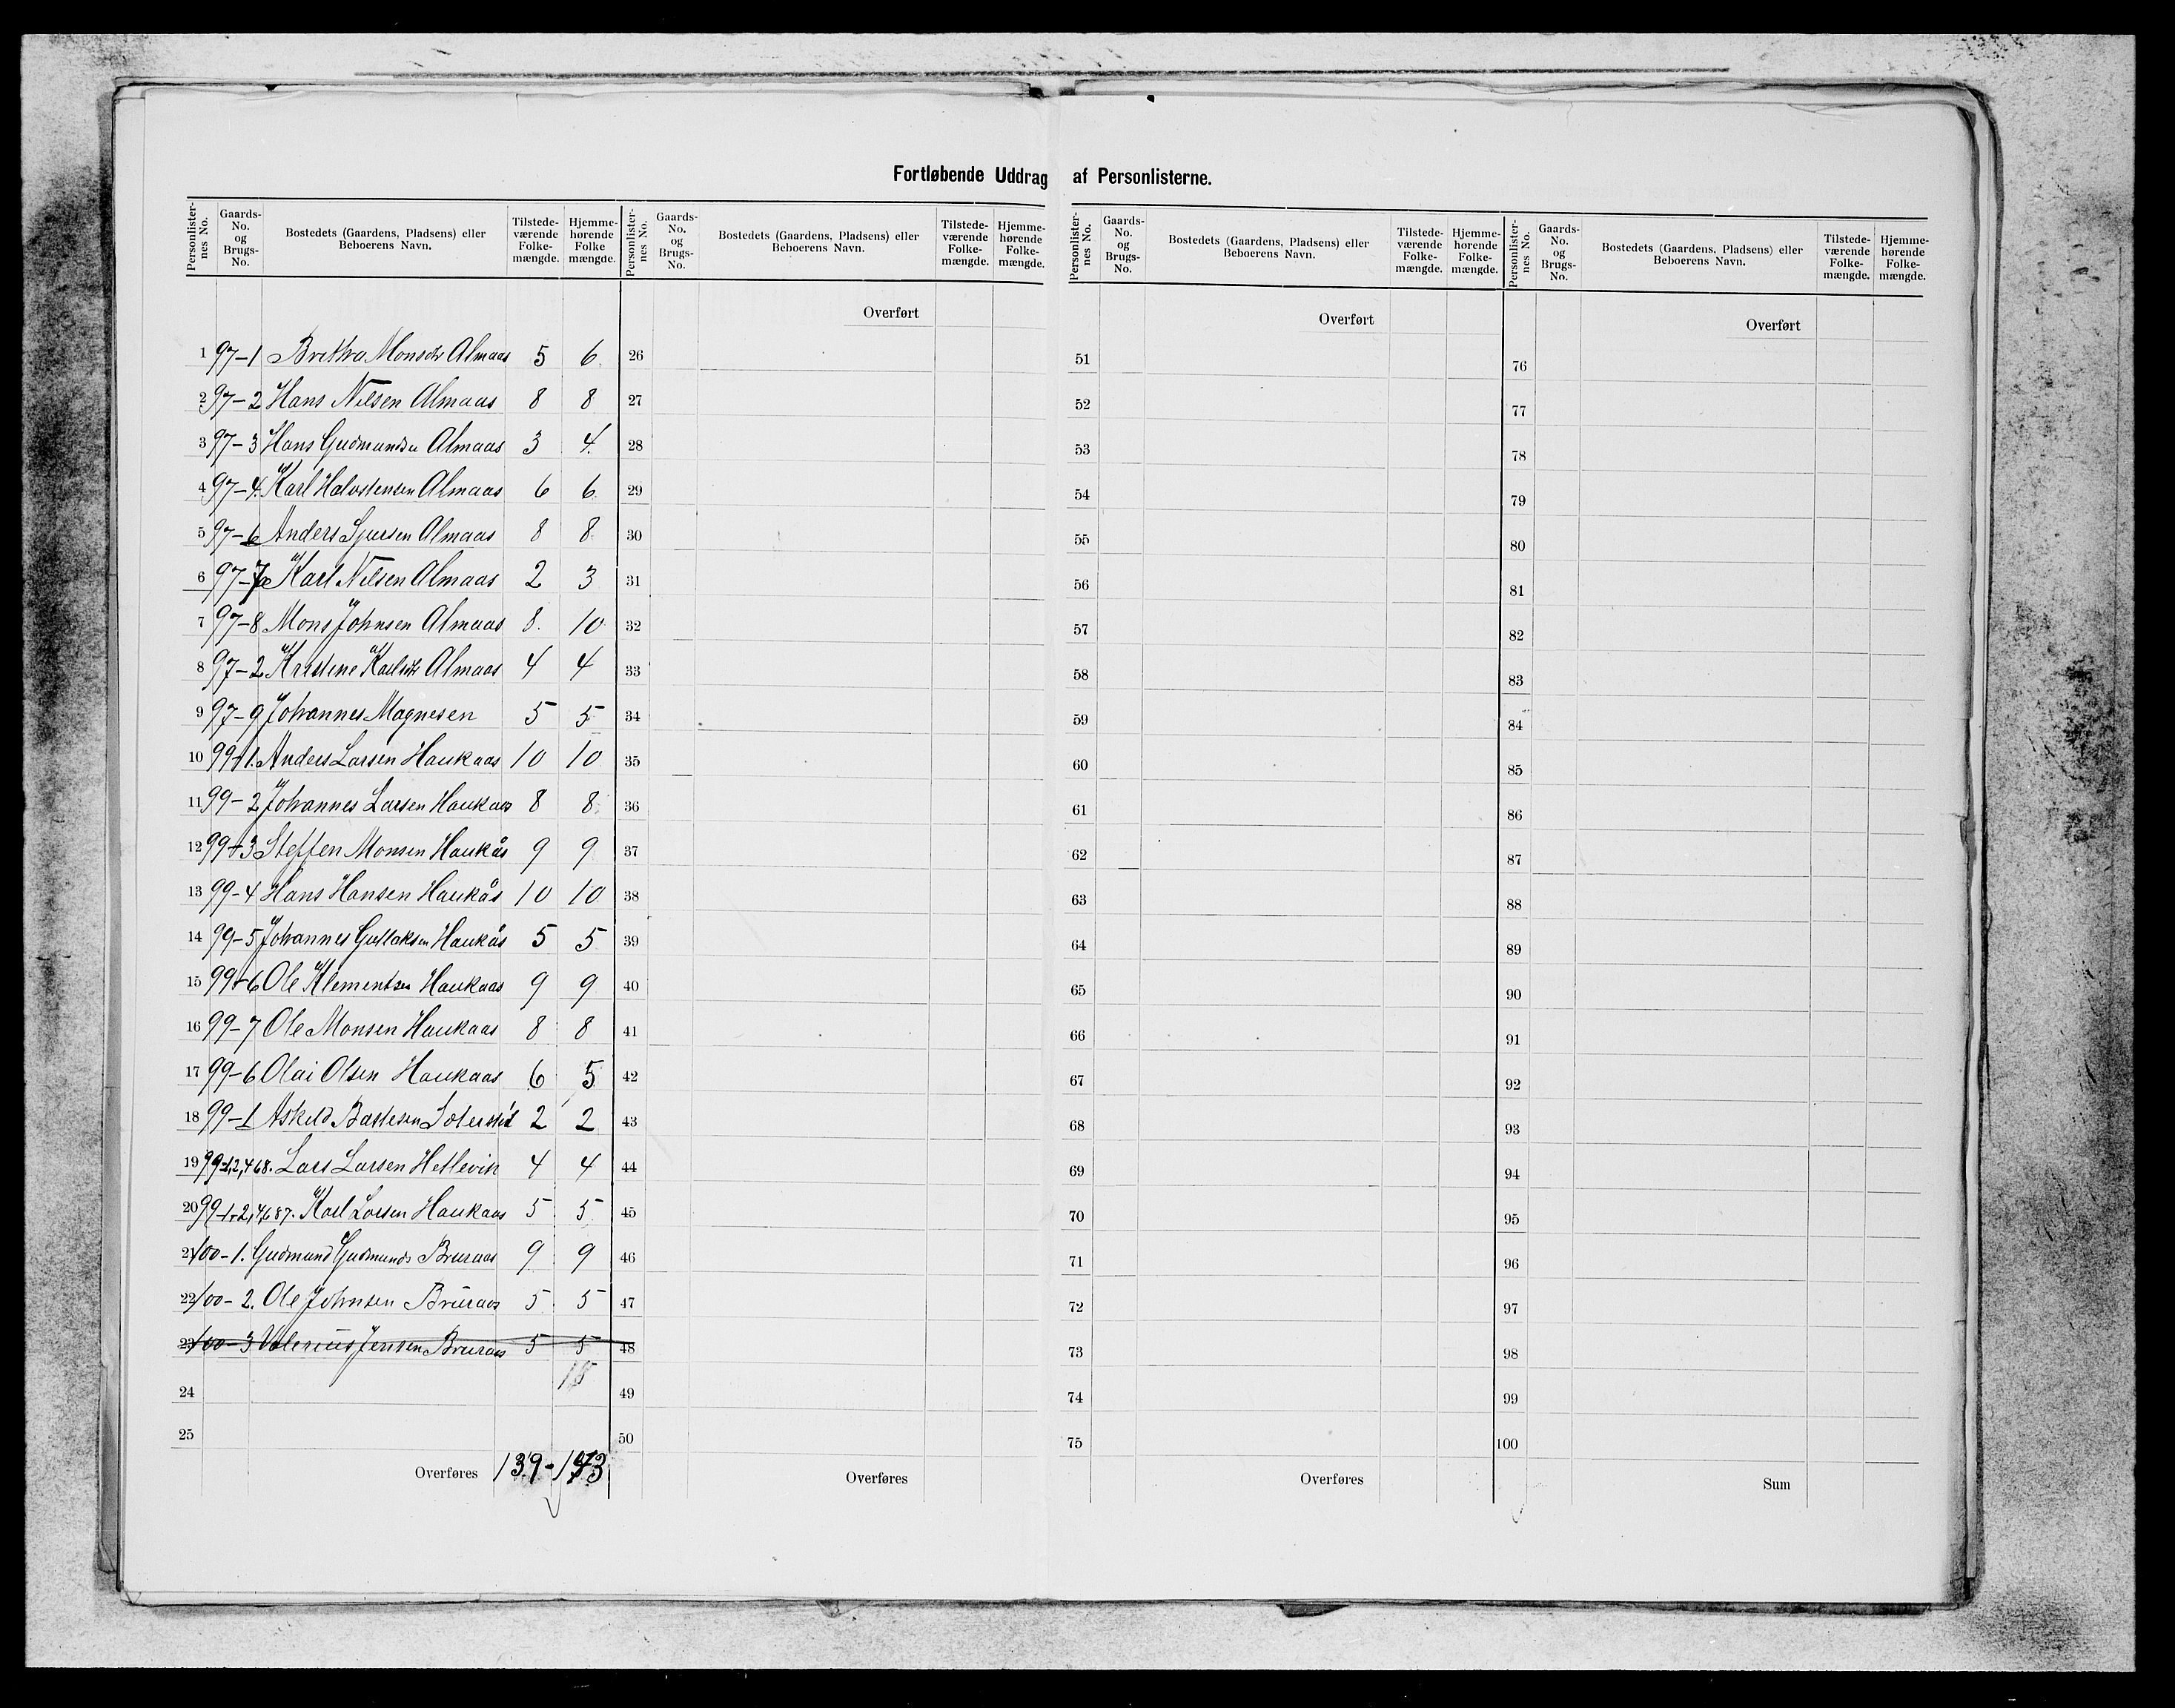 Fortløbende Uddrag af Personlisterne.
Personlister-nes No. Gaards-No. og Brugs-No. Bostedets (Gaardens, Pladsens) eller Beboerens Navn. Tilstede-værende Folke-mængde. Hjemme-hørende Folke mængde.
Personlister-nes No. Gaards-No. og Brugs-No. Bostedets (Gaardens, Pladsens) eller Beboerens Navn. Tilstede-værende Folke-mængde. Hjemme-hørende Folke-mængde.
Personlister-nes No. Gaards-No. og Brugs-No. Bostedets (Gaardens, Pladsens) eller Beboerens Navn. Tilstede-værende Folke-mængde. Hjemme-hørende Folke-mængde.
Personlister-nes No. Gaards-No. og Brugs-No. Bostedets (Gaardens, Pladsens) eller Beboerens Navn. Tilstede-værende Folke-mængde. Hjemme-hørende Folke-mængde.
1 97-1 Britha Almaas 5 6
2 97-2 Hans Nilsen Almaas 8 8
3 97-3 Hans Gudmundsn Almaas 3 4.
4 97-4. Karl Halvstensen Almaas 6 6
5 97-6 Anders Sjursen Almaas 8 8
6 97-7 Karl Nilsen Almaas 2 3
7 97-8 Mons Johnsen Almaas 8. 10
8 97-2 Kristine Almaas 4 4
9 97-9 Johannes Magnesen 5 5
10 99-1. Anders Larsen Haukaas 10 10
11 99-2 Johannes Larsen Haukaas 8 8
12 99-3 Steffen Monsen Haukås 9 9
13 99-4 Hans Hansen Haukås 10 10
14 99-5 Johannes Gullaksen Haukås 5 5
15 99-6 Ole Klementsen Haukaas 9 9
16 99-7 Ole Monsen Haukaas 8 8
17 99-6 Olai Olsen Haukaas 6 5
18 99-1 Askild Bastesen 2 2
19 99-1,2,4 68. Lars Larsen Hetlevik 4 4
20 99- Karl Larsen Haukaas 5 5
21 100-1. Gudmund Gudmunds Bruraas 9 9
22 100-2. Ole Johnsen Bruraas 5 5
23 100-3 Valerius Jensen Bruraas 5 5
24
25
Overføres 139-143
Overført
26
27
28
29
30
31
32
33
34
35
36
37
38
39
40
41
42
43
44
45
46
47
48
49
50
Overføres
Overført
51
52
53
54
55
56
57
58
59
60
61
62
63
64
65
66
67
68
69
70
71
72
73
74
75
Overføres
Overført
76
77
78
79
80
81
82
83
84
85
86
87
88
89
90
91
92
93
94
95
96
97
98
99
100
Sum